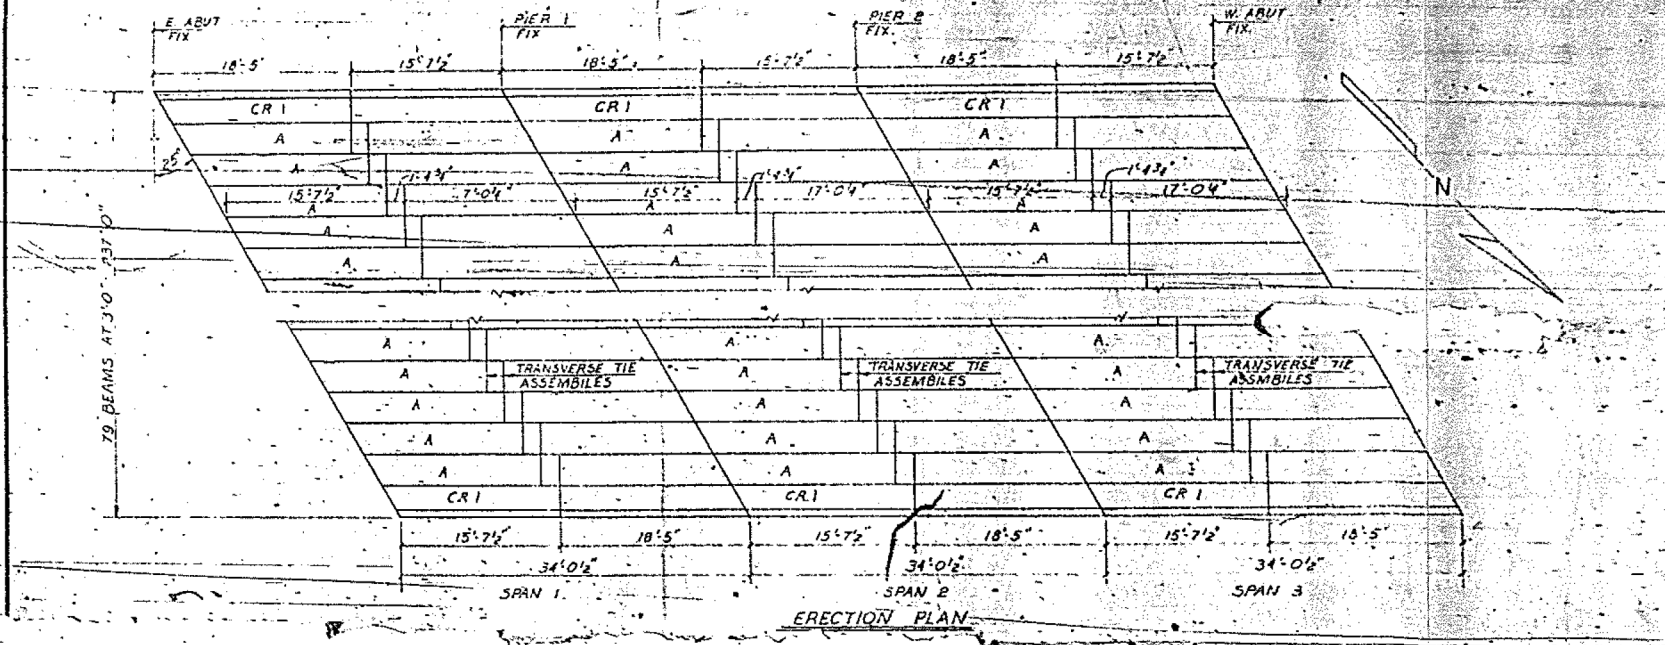 E. ABUT
FIX
PIER 1
FIX
PIER 2
FIX.
W. ABUT
FIX.
18'-5"
15'-7½"
18'-5"
15'-7½"
18'-5"
15'-7½"
CR 1
CR 1
CR 1
A
A
A
A
A
A
25°
1'-4¾"
1'-4¾"
1'-4¾"
15'-7½"
17'-0¼"
15'-7½"
17'-0¼"
15'-7½"
17'-0¼"
A
A
A
N
A
A
A
A
A
A
79 BEAMS AT 3'-0" = 237'-0"
A
A
A
A
TRANSVERSE TIE
ASSEMBILES
A
TRANSVERSE TIE
ASSEMBILES
A
TRANSVERSE TIE
ASSMBILES
A
A
A
A
A
A
A
A
A
CR 1
CR 1
CR 1
15'-7½"
18'-5"
15'-7½"
18'-5"
15'-7½"
18'-5"
34'-0½"
34'-0½"
34'-0½"
SPAN 1.
SPAN 2
SPAN 3
ERECTION PLAN